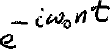 e^{-iω₀nt}